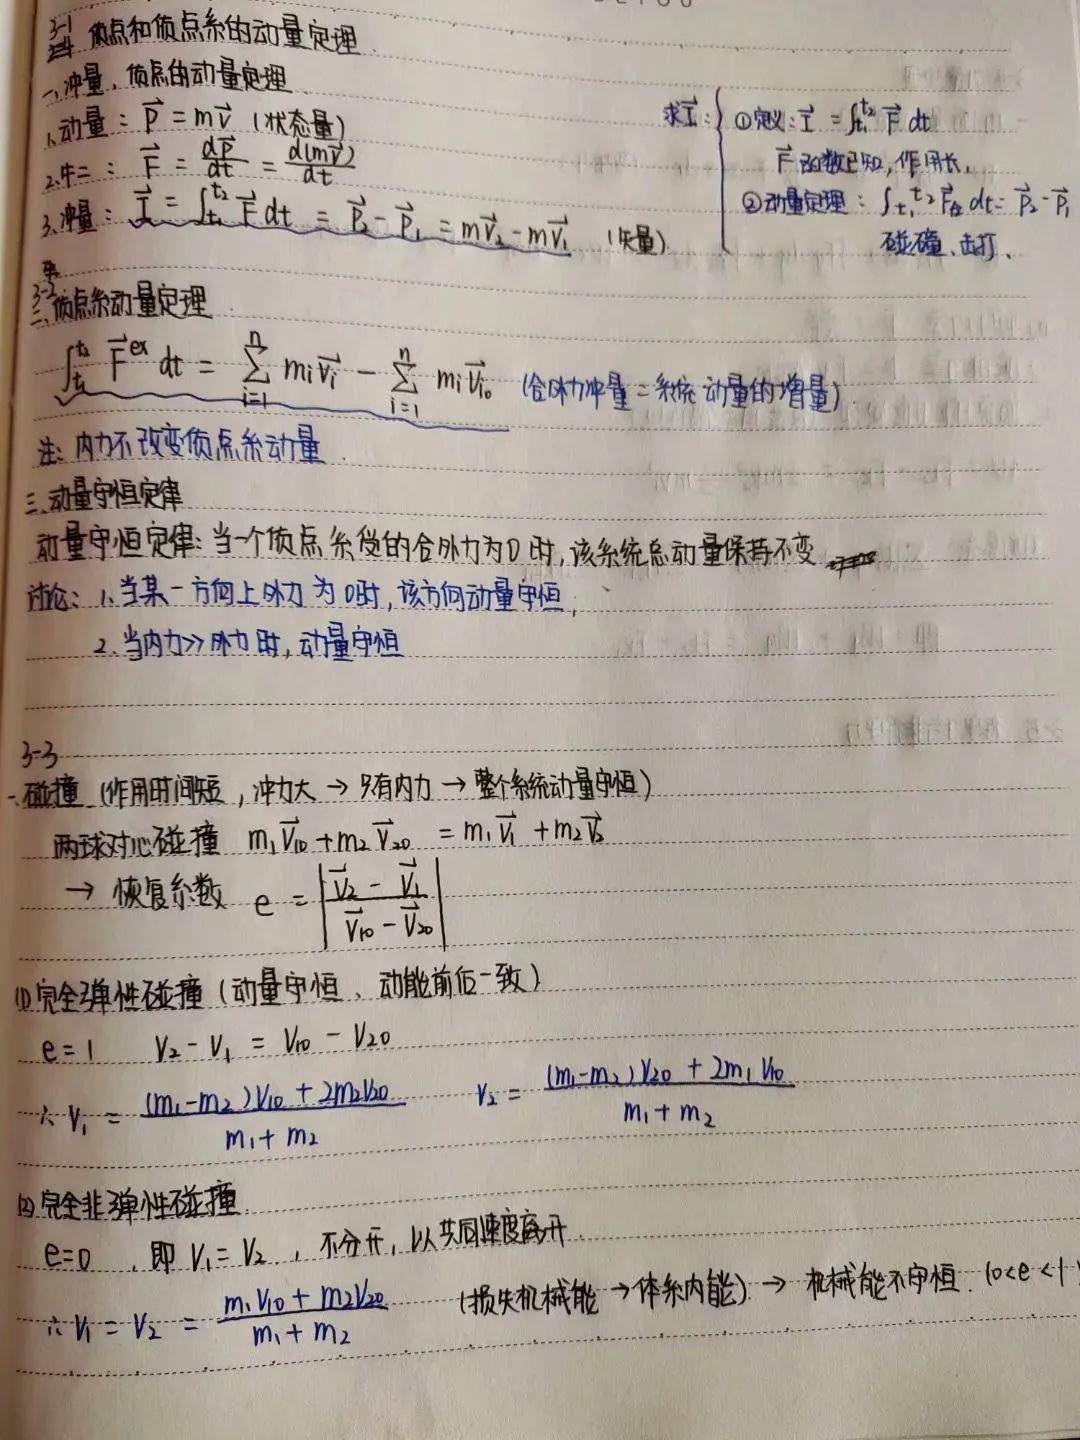 3-1 质点和质点系的动量定理
一、冲量、质点的动量定理
1、动量：\vec{P} = m\vec{v}（状态量）
2、牛二：\vec{F} = \frac{d\vec{P}}{dt} = \frac{d(m\vec{v})}{dt}
3、冲量：\vec{I} = \int_{t_1}^{t_2} \vec{F} dt = \vec{P}_2 - \vec{P}_1 = m\vec{v}_2 - m\vec{v}_1（矢量）
求\vec{I}：
①定义：\vec{I} = \int_{t_1}^{t_2} \vec{F} dt
\vec{F}函数已知，作用长，
②动量定理：\int_{t_1}^{t_2} \vec{F}_合 dt = \vec{P}_2 - \vec{P}_1
碰撞、击打、
二、质点系动量定理
\int_{t_1}^{t_2} \vec{F}^{ex} dt = \sum_{i=1}^{n} m_i\vec{v}_i - \sum_{i=1}^{n} m_i\vec{v}_{i0}（合外力冲量=系统动量的增量）
注：内力不改变质点系动量
三、动量守恒定律
动量守恒定律：当一个质点系受的合外力为0时，该系统总动量保持不变
讨论：1、当某一方向上外力为0时，该方向动量守恒；
2、当内力>>外力时，动量守恒
3-3
一、碰撞（作用时间短，冲力大→只有内力→整个系统动量守恒）
两球对心碰撞 m_1\vec{v}_{10} + m_2\vec{v}_{20} = m_1\vec{v}_1 + m_2\vec{v}_2
→ 恢复系数 e = \left|\frac{\vec{v}_2 - \vec{v}_1}{\vec{v}_{10} - \vec{v}_{20}}\right|
(1)完全弹性碰撞（动量守恒、动能前后一致）
e=1 v_2 - v_1 = v_{10} - v_{20}
∴ v_1 = \frac{(m_1-m_2)v_{10} + 2m_2v_{20}}{m_1+m_2} v_2 = \frac{(m_1-m_2)v_{20} + 2m_1v_{10}}{m_1+m_2}
(2)完全非弹性碰撞
e=0，即 v_1 = v_2，不分开，以共同速度离开
∴ v_1 = v_2 = \frac{m_1v_{10} + m_2v_{20}}{m_1+m_2}（损失机械能→体系内能）→ 机械能不守恒.（0<e<1）